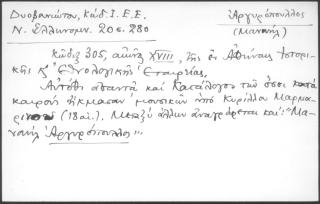 Δυοβουνιώτου, Κώδ. Ι. Ε. Ε.
Ν. Ἑλληνομν. 20ς. 280
Ἀργυρόπουλλος
(Μανουὴλ)
Κώδιξ 305, αἰῶνος XVIII, τῆς ἐν Ἀθήναις Ἱστορι-
κῆς κ' Ἐθνολογικῆς Ἑταιρείας.
Αὐτόθι ἀπαντᾷ καὶ Κατάλογος τῶν ὅσοι κατὰ
καιροὺς ἤκμασαν μουσικῶν ὑπὸ Κυρίλλου Μαρμα-
ρινοῦ (18 αἰ.). Μεταξὺ ἄλλων ἀναγράφεται καί: "Μα-
νουὴλ Ἀργυρόπουλλος".